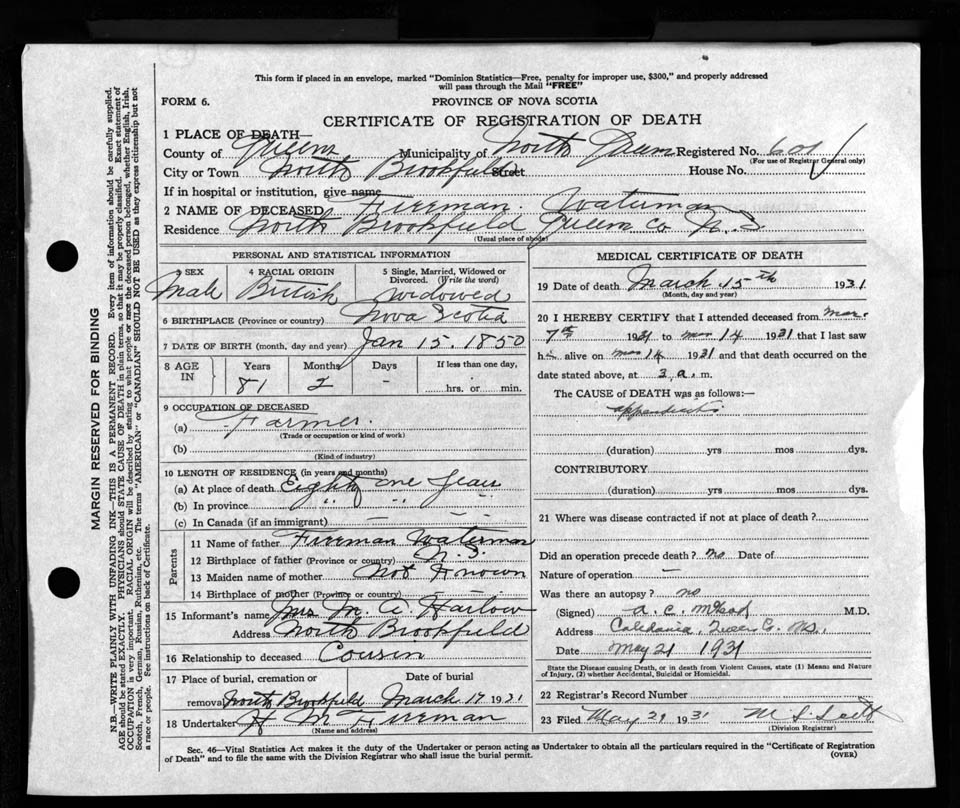 This form if placed in an envelope, marked "Dominion Statistics—Free, penalty for improper use, $300," and properly addressed
will pass through the Mail "FREE"
FORM 6.
PROVINCE OF NOVA SCOTIA
CERTIFICATE OF REGISTRATION OF DEATH
1 PLACE OF DEATH—
County of Queens Municipality of North Queens Registered No.
(For use of Registrar General only)
City or Town North Brookfield Street House No.
If in hospital or institution, give name
2 NAME OF DECEASED Freeman Waterman
Residence North Brookfield Queens Co N.S
(Usual place of abode)
PERSONAL AND STATISTICAL INFORMATION
3 SEX 4 RACIAL ORIGIN 5 Single, Married, Widowed or
Divorced. (Write the word)
Male British widowed
6 BIRTHPLACE (Province or country) Nova Scotia
7 DATE OF BIRTH (month, day and year) Jan 15. 1850
8 AGE IN Years Months Days If less than one day,
81 2 – hrs. or min.
9 OCCUPATION OF DECEASED
(a) Farmer
(Trade or occupation or kind of work)
(b)
(Kind of industry)
10 LENGTH OF RESIDENCE (in years and months)
(a) At place of death Eighty one Years
(b) In province " " "
(c) In Canada (if an immigrant) — —
Parents
11 Name of father Freeman Waterman
12 Birthplace of father (Province or country) N.S.
13 Maiden name of mother Not Known
14 Birthplace of mother (Province or country)
15 Informant's name Mrs M. A Harlow
Address North Brookfield
16 Relationship to deceased Cousin
17 Place of burial, cremation or Date of burial
removal North Brookfield March 17 1931
18 Undertaker H M Freeman
(Name and address)
MEDICAL CERTIFICATE OF DEATH
19 Date of death March 15th 1931
(Month, day and year)
20 I HEREBY CERTIFY that I attended deceased from Mar.
7th 1931 to Mar 14 1931 that I last saw
him alive on Mar 14 1931 and that death occurred on the
date stated above, at 3 a. m.
The CAUSE of DEATH was as follows:—
appendicitis
(duration) yrs mos dys.
CONTRIBUTORY
(duration) yrs mos dys.
21 Where was disease contracted if not at place of death?
Did an operation precede death? no Date of
Nature of operation —
Was there an autopsy? no
(Signed) A. C. M.D.
Address Caledonia, Queens Co. N.S.
Date May 21 1931
State the Disease causing Death, or in death from Violent Causes, state (1) Means and Nature
of Injury, (2) whether Accidental, Suicidal or Homicidal.
22 Registrar's Record Number
23 Filed May 29 1931 M. S. Scott
(Division Registrar)
Sec. 46—Vital Statistics Act makes it the duty of the Undertaker or person acting as Undertaker to obtain all the particulars required in the "Certificate of Registration
of Death" and to file the same with the Division Registrar who shall issue the burial permit. (OVER)
MARGIN RESERVED FOR BINDING
N.B.—WRITE PLAINLY WITH UNFADING INK—THIS IS A PERMANENT RECORD. Every item of information should be carefully supplied.
AGE should be stated EXACTLY. PHYSICIANS should STATE CAUSE OF DEATH in plain terms, so that it may be properly classified. Exact statement of
OCCUPATION is very important. RACIAL ORIGIN will be described by stating to what people or race the deceased person belonged, whether English, Irish,
Scotch, French, German, Russian, Ruthenian, etc. The terms "AMERICAN" or "CANADIAN" SHOULD NOT BE USED as they express citizenship but not
a race or people. See instructions on back of Certificate.